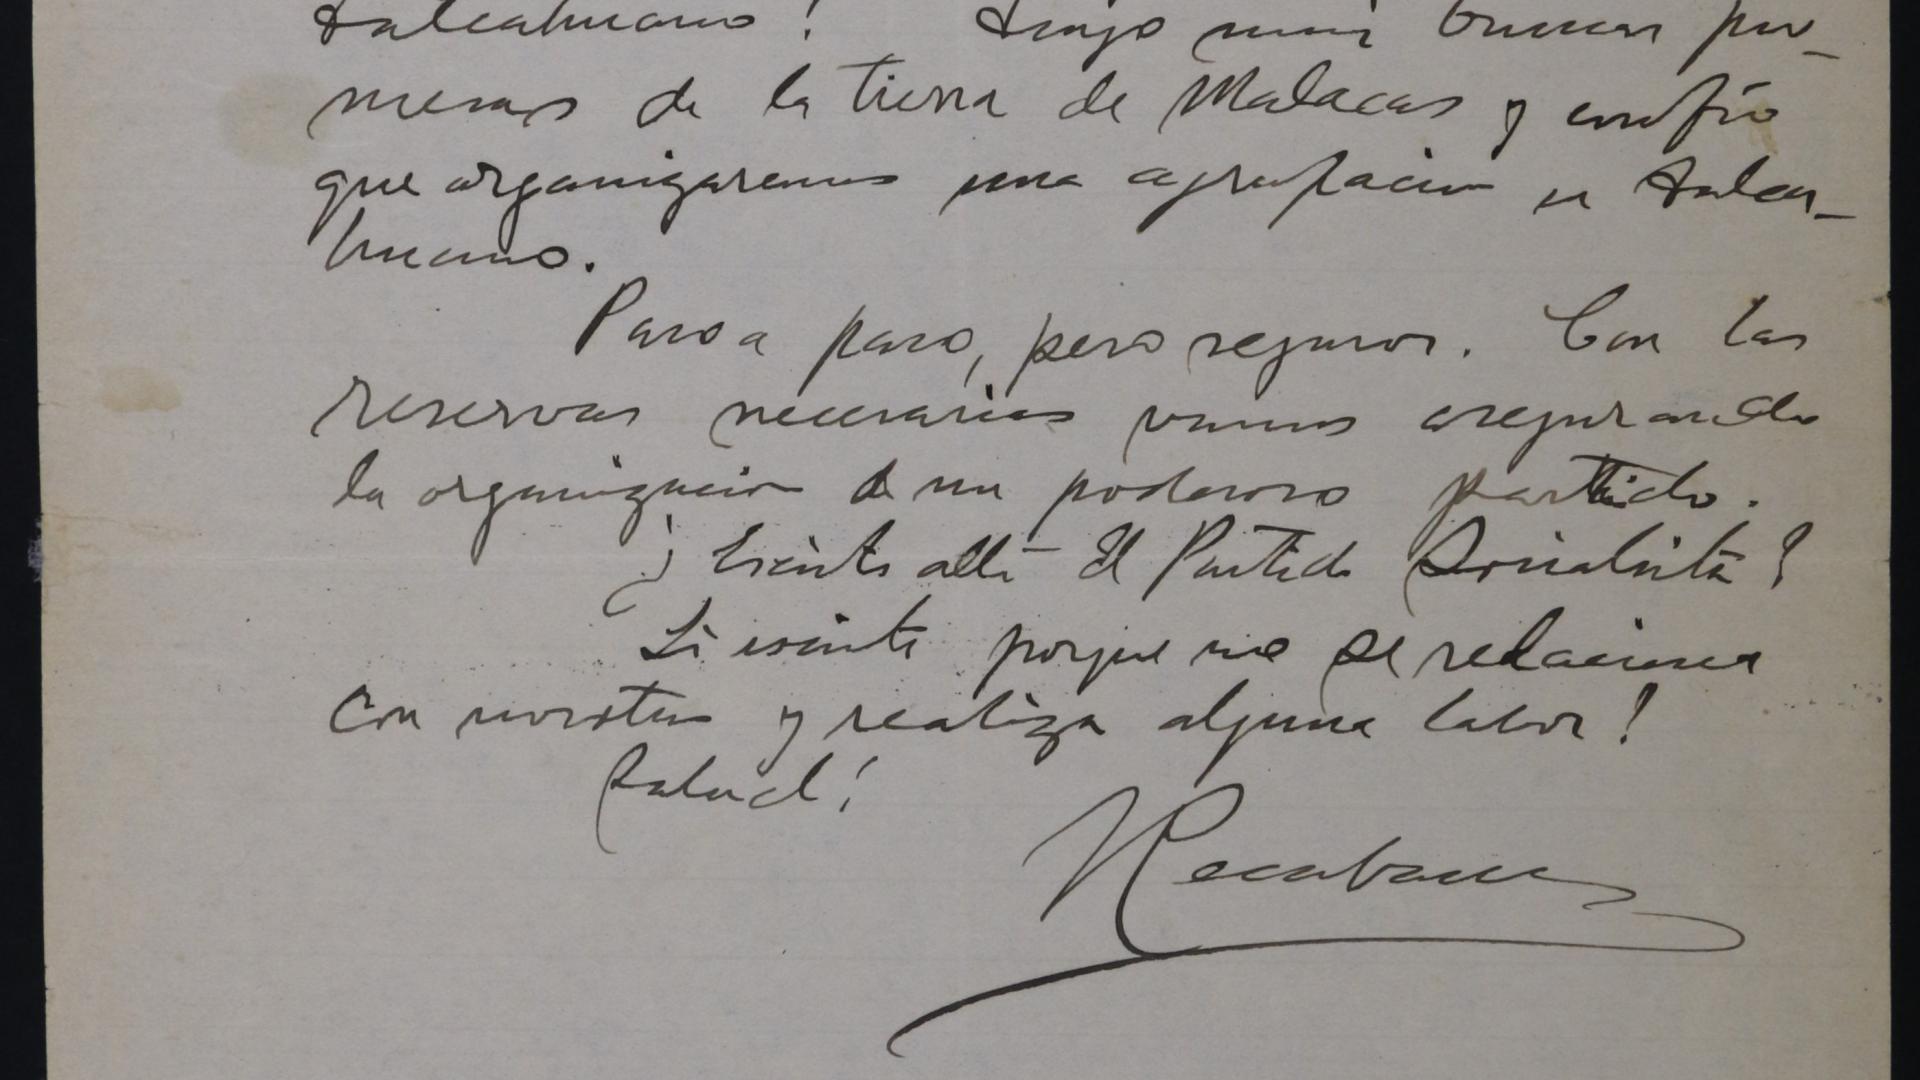 Talcahuano! Tengo muy buenas pro-
mesas de la tierra de Malacas y confío
que organizaremos una agrupacion en Talca-
huano.
Paso a paso, pero seguros. Con las
reservas necesarias vamos asegurando
la organizacion de un poderoso partido.
¿Existe allí El Partido Socialista?
Si existe porque no se relaciona
con nosotros y realiza alguna labor!
Salud!
Recabarren